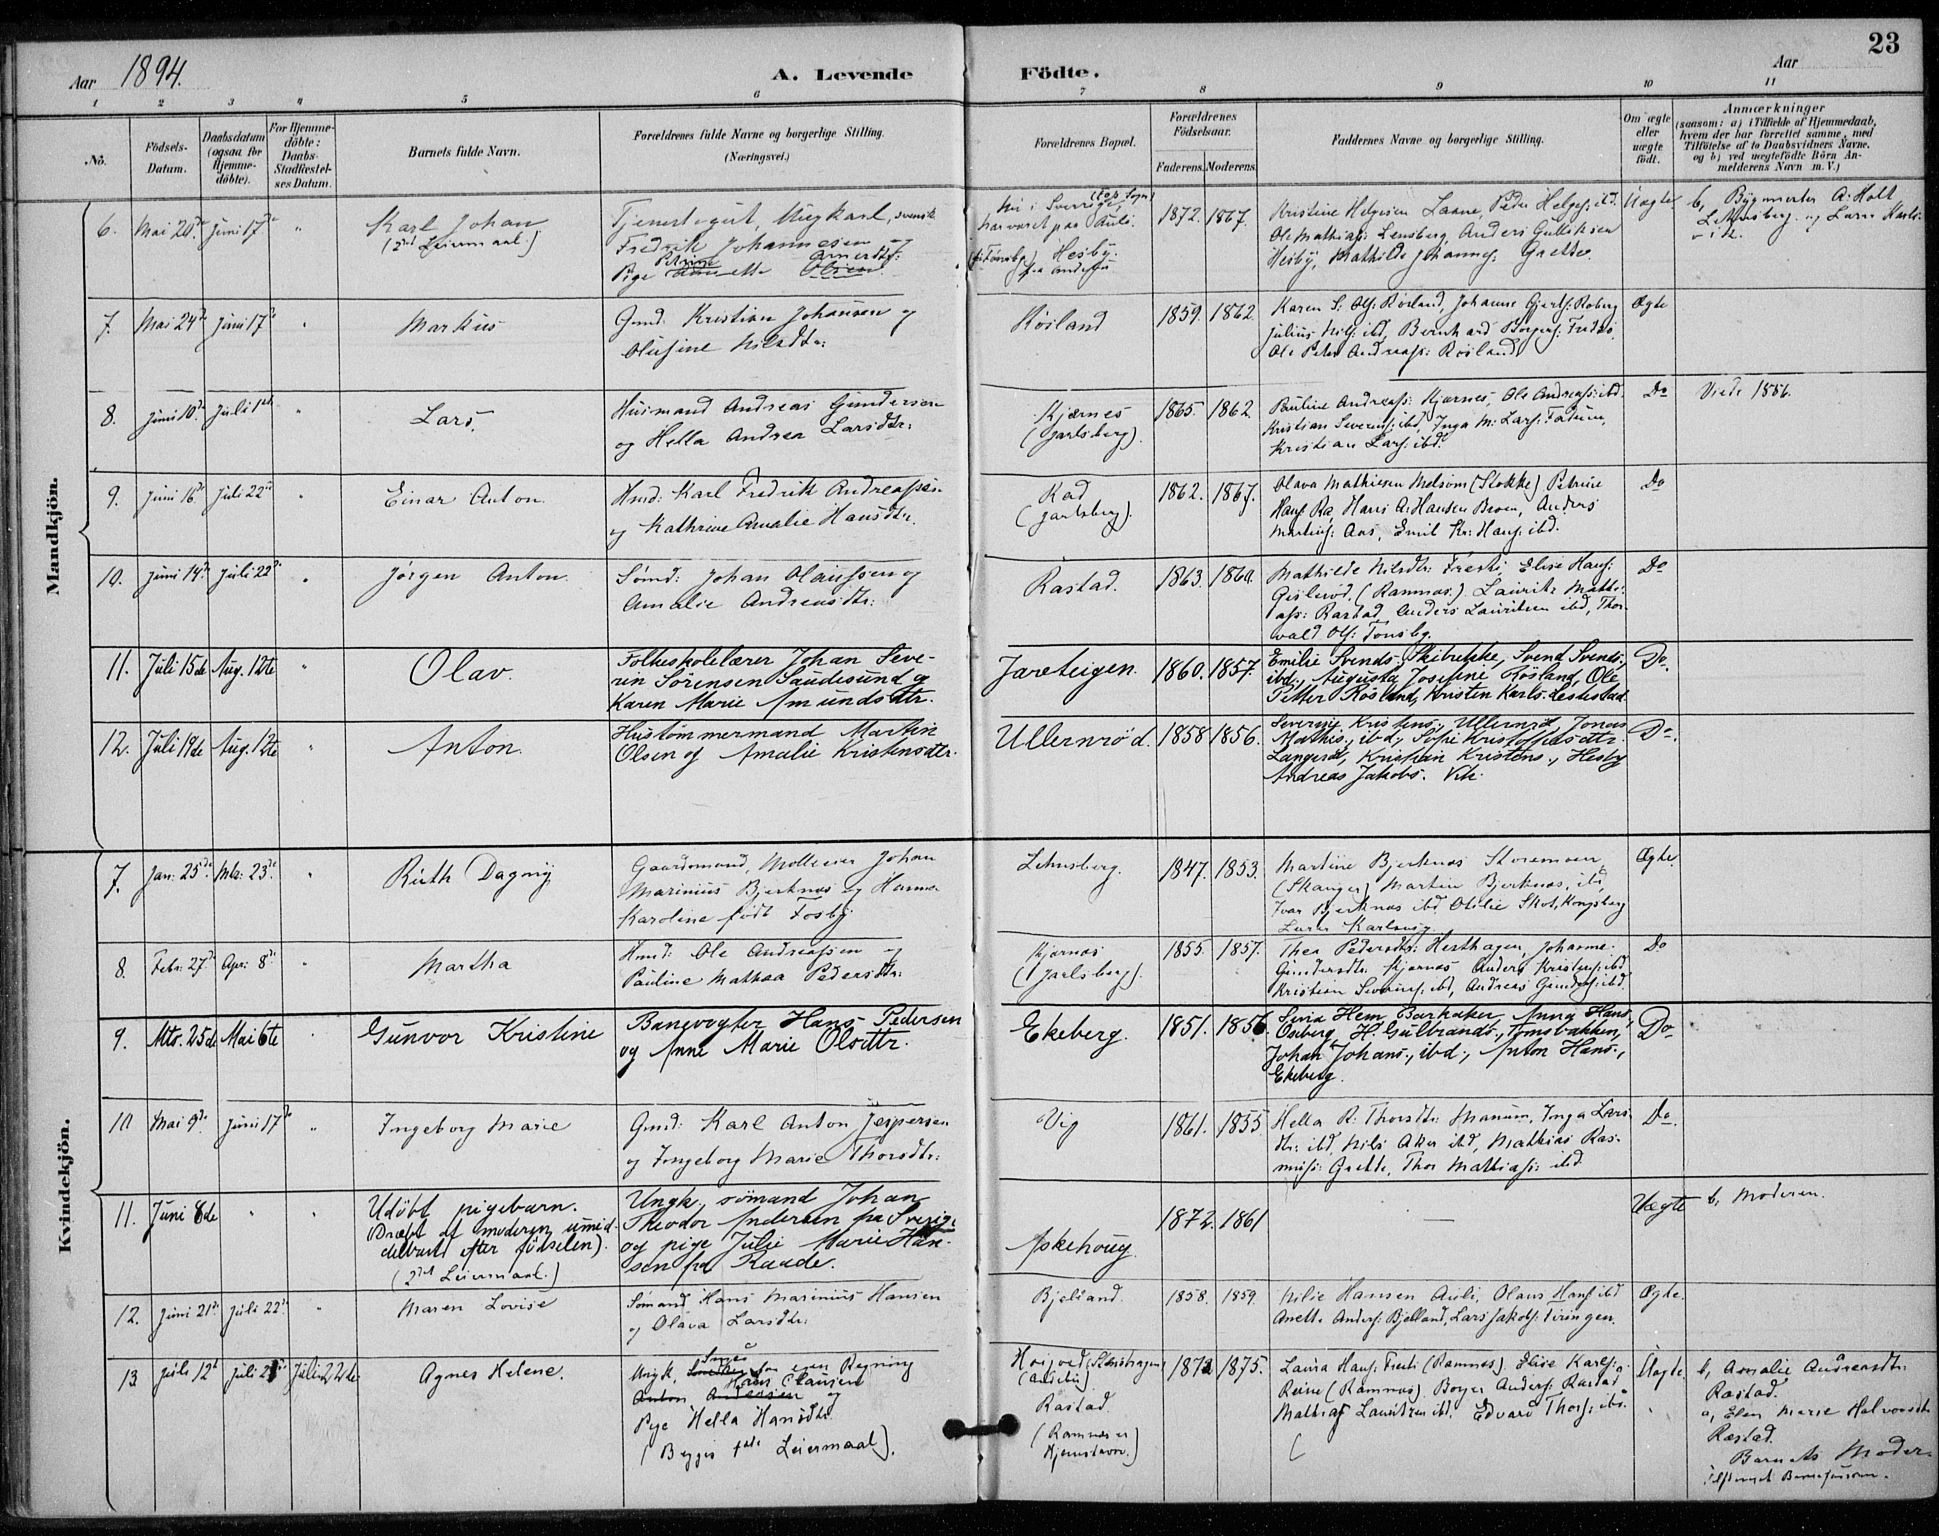 23
Aar 1894.
A. Levende Födte.
Aar
1 2 3 4 5 6 7 8 9 10 11
No.
Födsels-Datum.
Daabsdatum (ogsaa for Hjemme-döbte).
For Hjemme-döbte: Daabs-Stadfæstel-ses Datum.
Barnets fulde Navn.
Forældrenes fulde Navne og borgerlige Stilling.
(Næringsvei.)
Forældrenes Bopæl.
Forældrenes Födselsaar.
Faderens. Moderens.
Faddernes Navne og borgerlige Stilling.
Om ægte eller uægte födt.
Anmærkninger
(saasom: a) i Tilfælde af Hjemmedaab,
hvem der har forrettet samme, med
Tilföielse af to Daabsvidners Navne.
og b) ved uægtefödte Börn An-
melderens Navn m. V.)
Mandkjön.
6. Mai 20de Juni 17de " Karl Johan
(2det Leiermaal)
Tjenestegut, Ungkarl, svensk
Fredrik Johannesen og
Pige Petrine
Nu i Sverige
har været paa Auli.
Hesby.
1872. 1867.
Kristine Helgesen Laane, Peder Helges: ibd.
Ole Mathias: Lensberg, Anders Gulliksen
Hesby, Mathilde Johannes: Grette.
Uægte
b, Bygmester A. Holt
7. Mai 24de Juni 17de " Markus
Gmd: Kristian Johansen og
Olufine Nilsdtr:
Røsland
1859. 1862.
Karen S. Ols: Røsland, Johanne Gjerts: Roberg
Julius Nils: ibd, Bernhard Borgers: Fredes
Ole Peter Andreass: Røsland
Ægte
8. Juni 10de Juli 1ste " Lars.
Husmand Andreas Gundersen
og Hella Andrea Larsdtr:
Kjærnes
(Jarlsberg).
1865. 1862.
Pauline Andreass: Kjærnes, Ole Andreass: ibd.
Kristian Severins: ibd, Inga M: Lars: Fadum,
Kristian Lars: ibd.
Do
Viede 1886.
9. Juni 16de Juli 22de " Einar Anton.
Hmd: Karl Fredrik Andreassen
og Kathrine Amalie Hansdtr.
(Jarlsberg).
1862. 1867.
Olava Mathiesen Melsom (Stokke) Petrine
Hans: Ra, Hans A: Hansen Broen, Anders
Martins: Aas, Emil Kr: Hans: ibd.
Do
10. Juni 14de Juli 22de " Jørgen Anton.
Sømd: Johan Olaussen og
Amalie Andreasdtr:
Rastad.
1863. 1860.
Mathilde Nilsdtr: Fresti, Elise Hans:
Gislerød, (Ramnæs) Laurits Mathi-
ass: Rastad, Anders Lauritsen ibd, Thor-
vald Ols: Tønsbg.
Do
11. Juli 15de Aug. 12te " Olav.
Folkeskolelærer Johan Seve-
rin Sörensen Sandesund og
Karen Marie Amundsdtr.
Jareteigen.
1860. 1857.
Emilie Svends. Skibrekke, Svend Svends.,
ibd., Augusta Josefine Rösland, Ole
Petter Rösland, Kristen Karls. Lestestad
Do.
12. Juli 19de Aug. 12te " Anton.
Hustömmermand Martin
Olsen og Amalie Kristensdtr.
Ullernröd.
1858 1856.
Severine Kristens., Ullernröd, Jonas
Mathis., ibd., Sofie Kristoffersdtr.
Langeröd, Kristian Kristens., Hesby
Andreas Jakobs. Vik.
Do.
Kvindekjön.
7. Jan: 25de Mts: 23de " Ruth Dagny
Gaardmand, Mölleeier Johan
Marinius Bjerknæs og Hanna
Karoline født Fosby.
Lensberg.
1847. 1853.
Martine Bjerknæs Storemoen,
(Skanger) Martin Bjerknæs, ibd,
Ivar Bjerknæs ibd, Otilie Skot, Kongsberg
Ægte.
8. Febr: 27de Apr: 8de " Martha
Hmd: Ole Andreassen og
Pauline Mathea Pedersdtr:
Kjærnæs
(Jarlsberg).
1855. 1857.
Thea Pedersdtr: Hesthagen, Johanne
Gundersdtr: Kjærnæs, Anders Kristens: ibd
Kristian Severins: ibd, Andreas Gunders: ibd.
Do
9. Mts. 25de Mai 6te " Gunvor Kristine
Banevogter Hans Pedersen
og Anne Marie Olsdtr.
Ekeberg.
1851. 1856.
Lina Hem, Barkaker, Anna Hans.
Oseberg, H. Gulbrands., Tomsbakken,
Johan Johans., ibd., Anton Hans.,
Ekeberg.
Do
10 Mai 9de Juni 17de " Ingeborg Marie
Gmd: Karl Anton Jespersen
og Ingeborg Marie Thorsdtr:
Vig
1861. 1855
Hella R: Thorsdtr: Manum, Inga Lars-
dtr: ibd, Nils Aker ibd, Mathias Ras-
mus: Grette, Thor Mathias: ibd
Do.
11. Juni 8de " " Udöbt pigebarn.
(Dræbt af moderen umid-
delbart efter födselen).
(2det Leiermaal.)
Ungk., sömand Johan
Theodor Andersen fra Sverige
og pige Julie Marie Han-
sen fra Raade.
Askehoug.
1872. 1861
—
Uægte b, Moderen.
12. Juni 21de Juli 22de " Maren Lovise
Sømand Hans Marinius Hansen
og Olava Larsdtr:
Bjelland.
1858. 1859.
Nilie Hansen Auli, Olaus Hans: ibd
Anette Anders: Bjelland, Lars Jakobs: Tiringen.
Ægte.
13 Juli 12te Juli 21de Juli 22de Agnes Helene.
Ungk.
Hans Clausen
Anton Andersen og
Pige Hella Hansdtr
(Begges 1ste Leiermaal).
Rastad.
(Ramnæs er
Hjemstavn.)
1872 1875.
Laura Hans: Fresti (Ramnæs). Elise Karls:
Reine (Ramnæs). Borger Anders: Rastad
Mathias Lauritzen ibd. Edvard Thors: ibd.
Uægte.
b, Amalie Andreasdtr:
Rastad.
a, Elen Marie Halvorsdtr
Rastad.
Barnets Moder